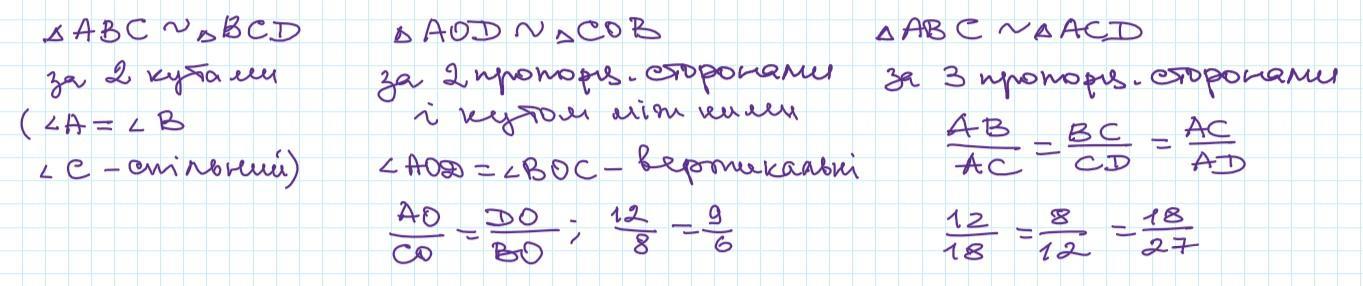 △ABC ~ △BCD
за 2 кутами
(∠A = ∠B
∠C - спільний)
△AOD ~ △COB
за 2 пропорц. сторонами
і кутом між ними
∠AOD = ∠BOC - вертикальні
AO/CO = DO/BO; 12/8 = 9/6
△ABC ~ △ACD
за 3 пропорц. сторонами
AB/AC = BC/CD = AC/AD
12/18 = 8/12 = 18/27